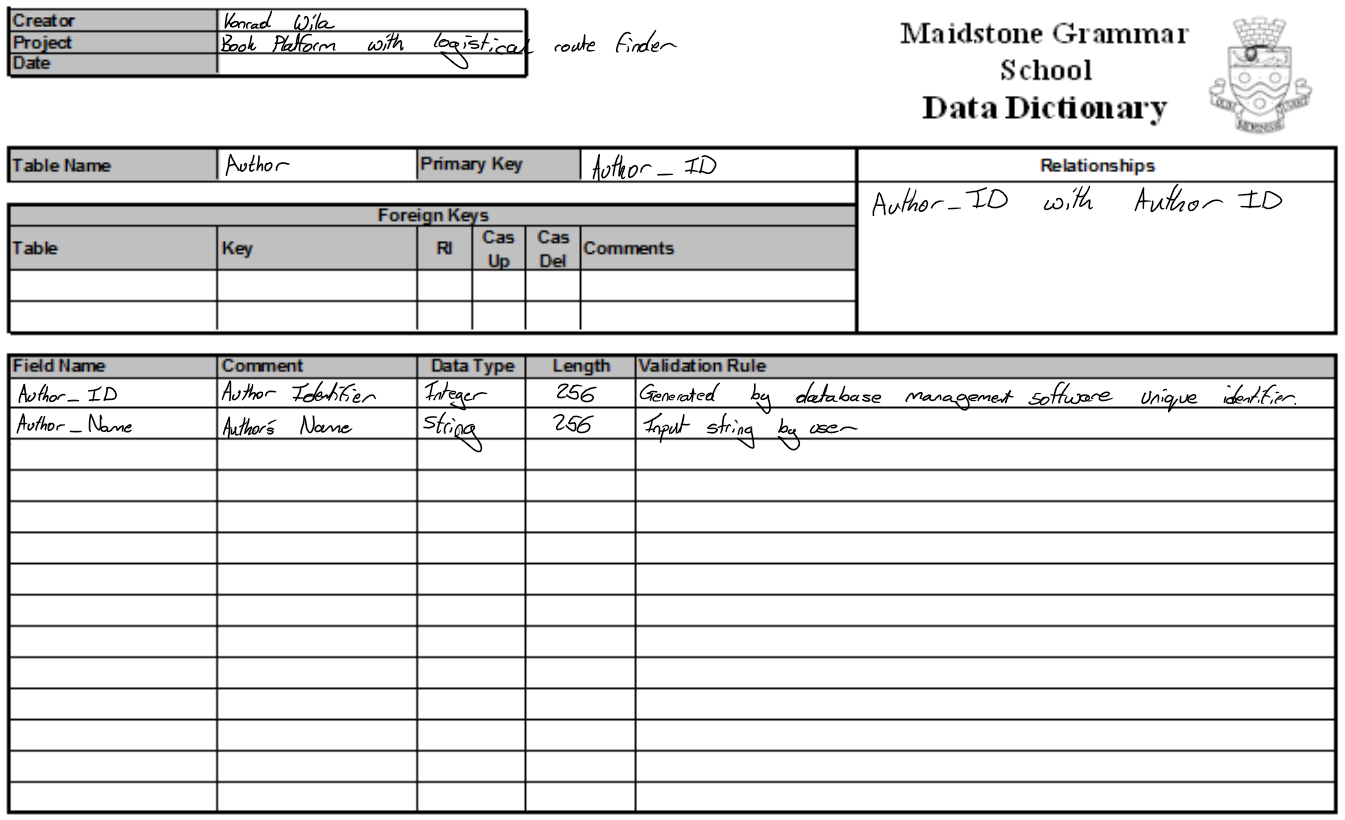 Creator Konrad Wila
Project Book Platform with logistical route finder
Date
Maidstone Grammar
School
Data Dictionary
Table Name Author Primary Key Author_ID
Relationships
Author_ID with Author ID
Foreign Keys
Table Key RI Cas Up Cas Del Comments
Field Name Comment Data Type Length Validation Rule
Author_ID Author Identifier Integer 256 Generated by database management software unique identifier.
Author_Name Author's Name String 256 Input string by user